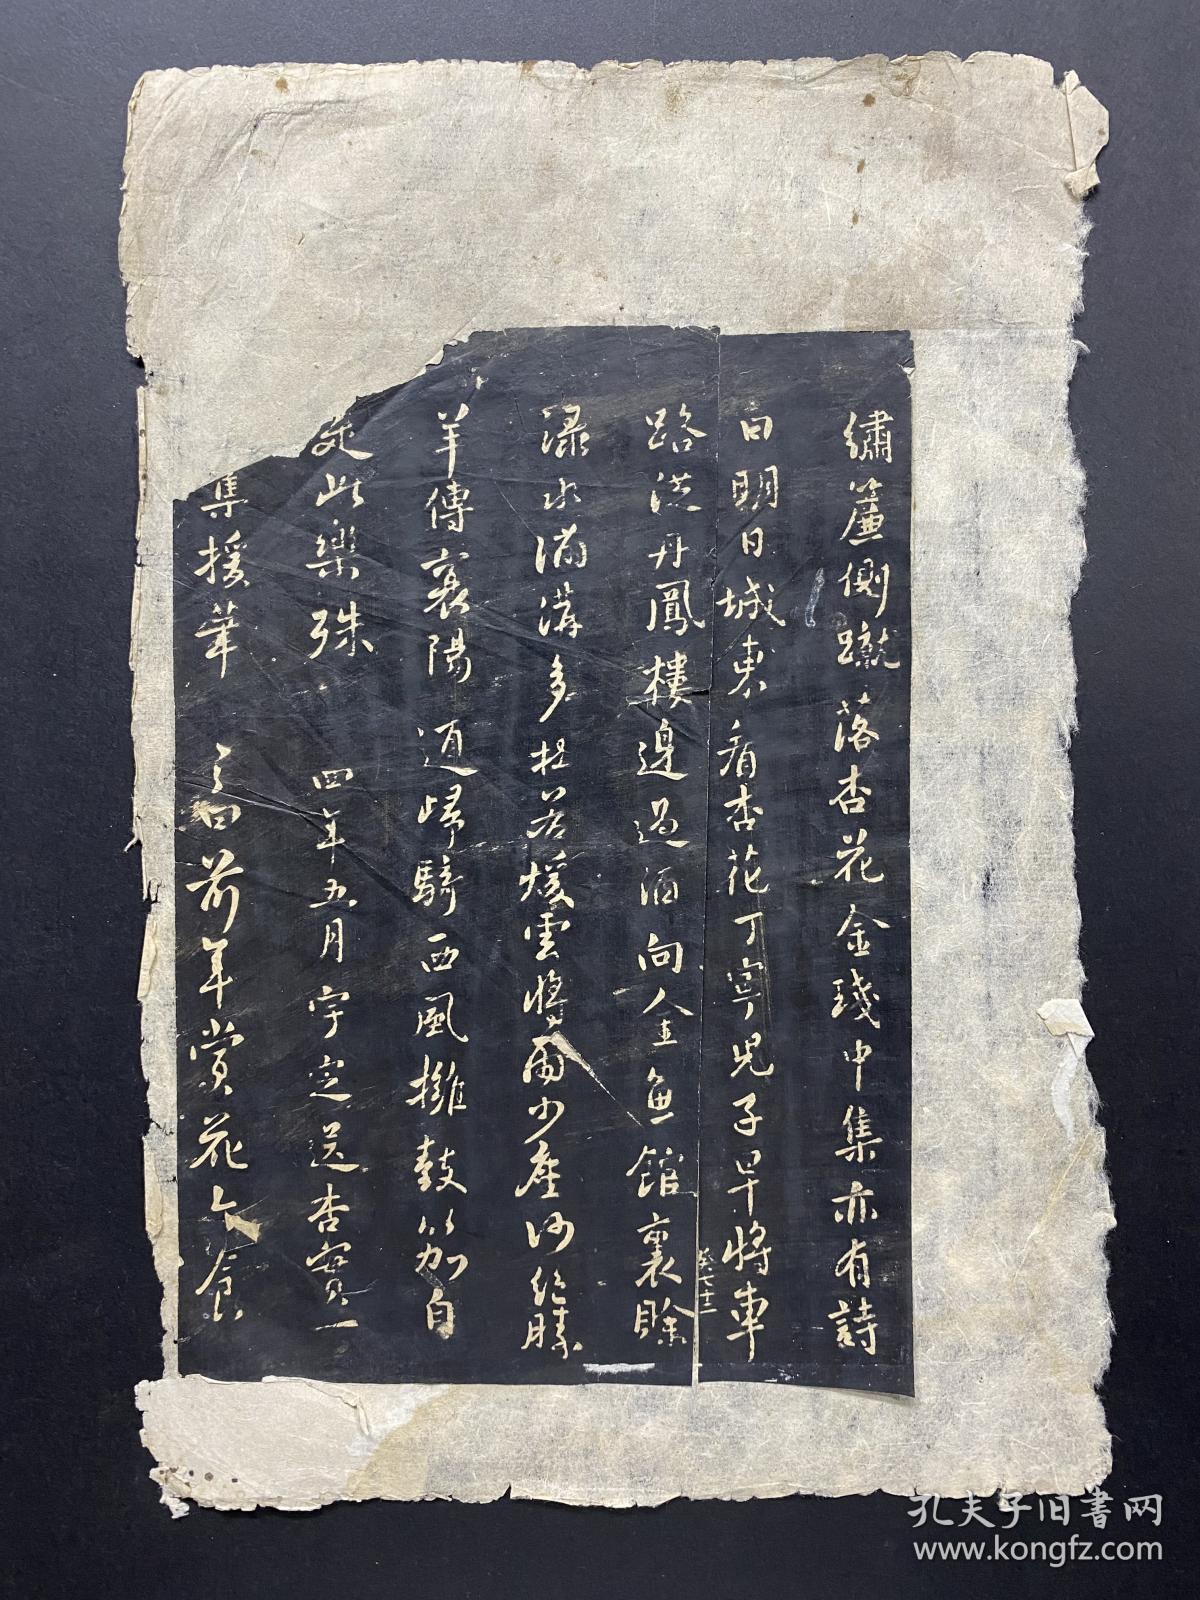 繡簾側蹴落杏花金錢中集亦有詩
曰明日城東看杏花丁寧児子早將車
路從丹鳳樓邊過酒向金魚館裏賖
渌水滿溝多杜若煖雲將雨少塵沙絶勝
羊傳襄陽道歸騎西風擁鼓笳自
此樂殊 四年五月宇定送杏實一
集援筆 前年賞花 食
癸七十三
孔夫子旧書网
www.kongfz.com